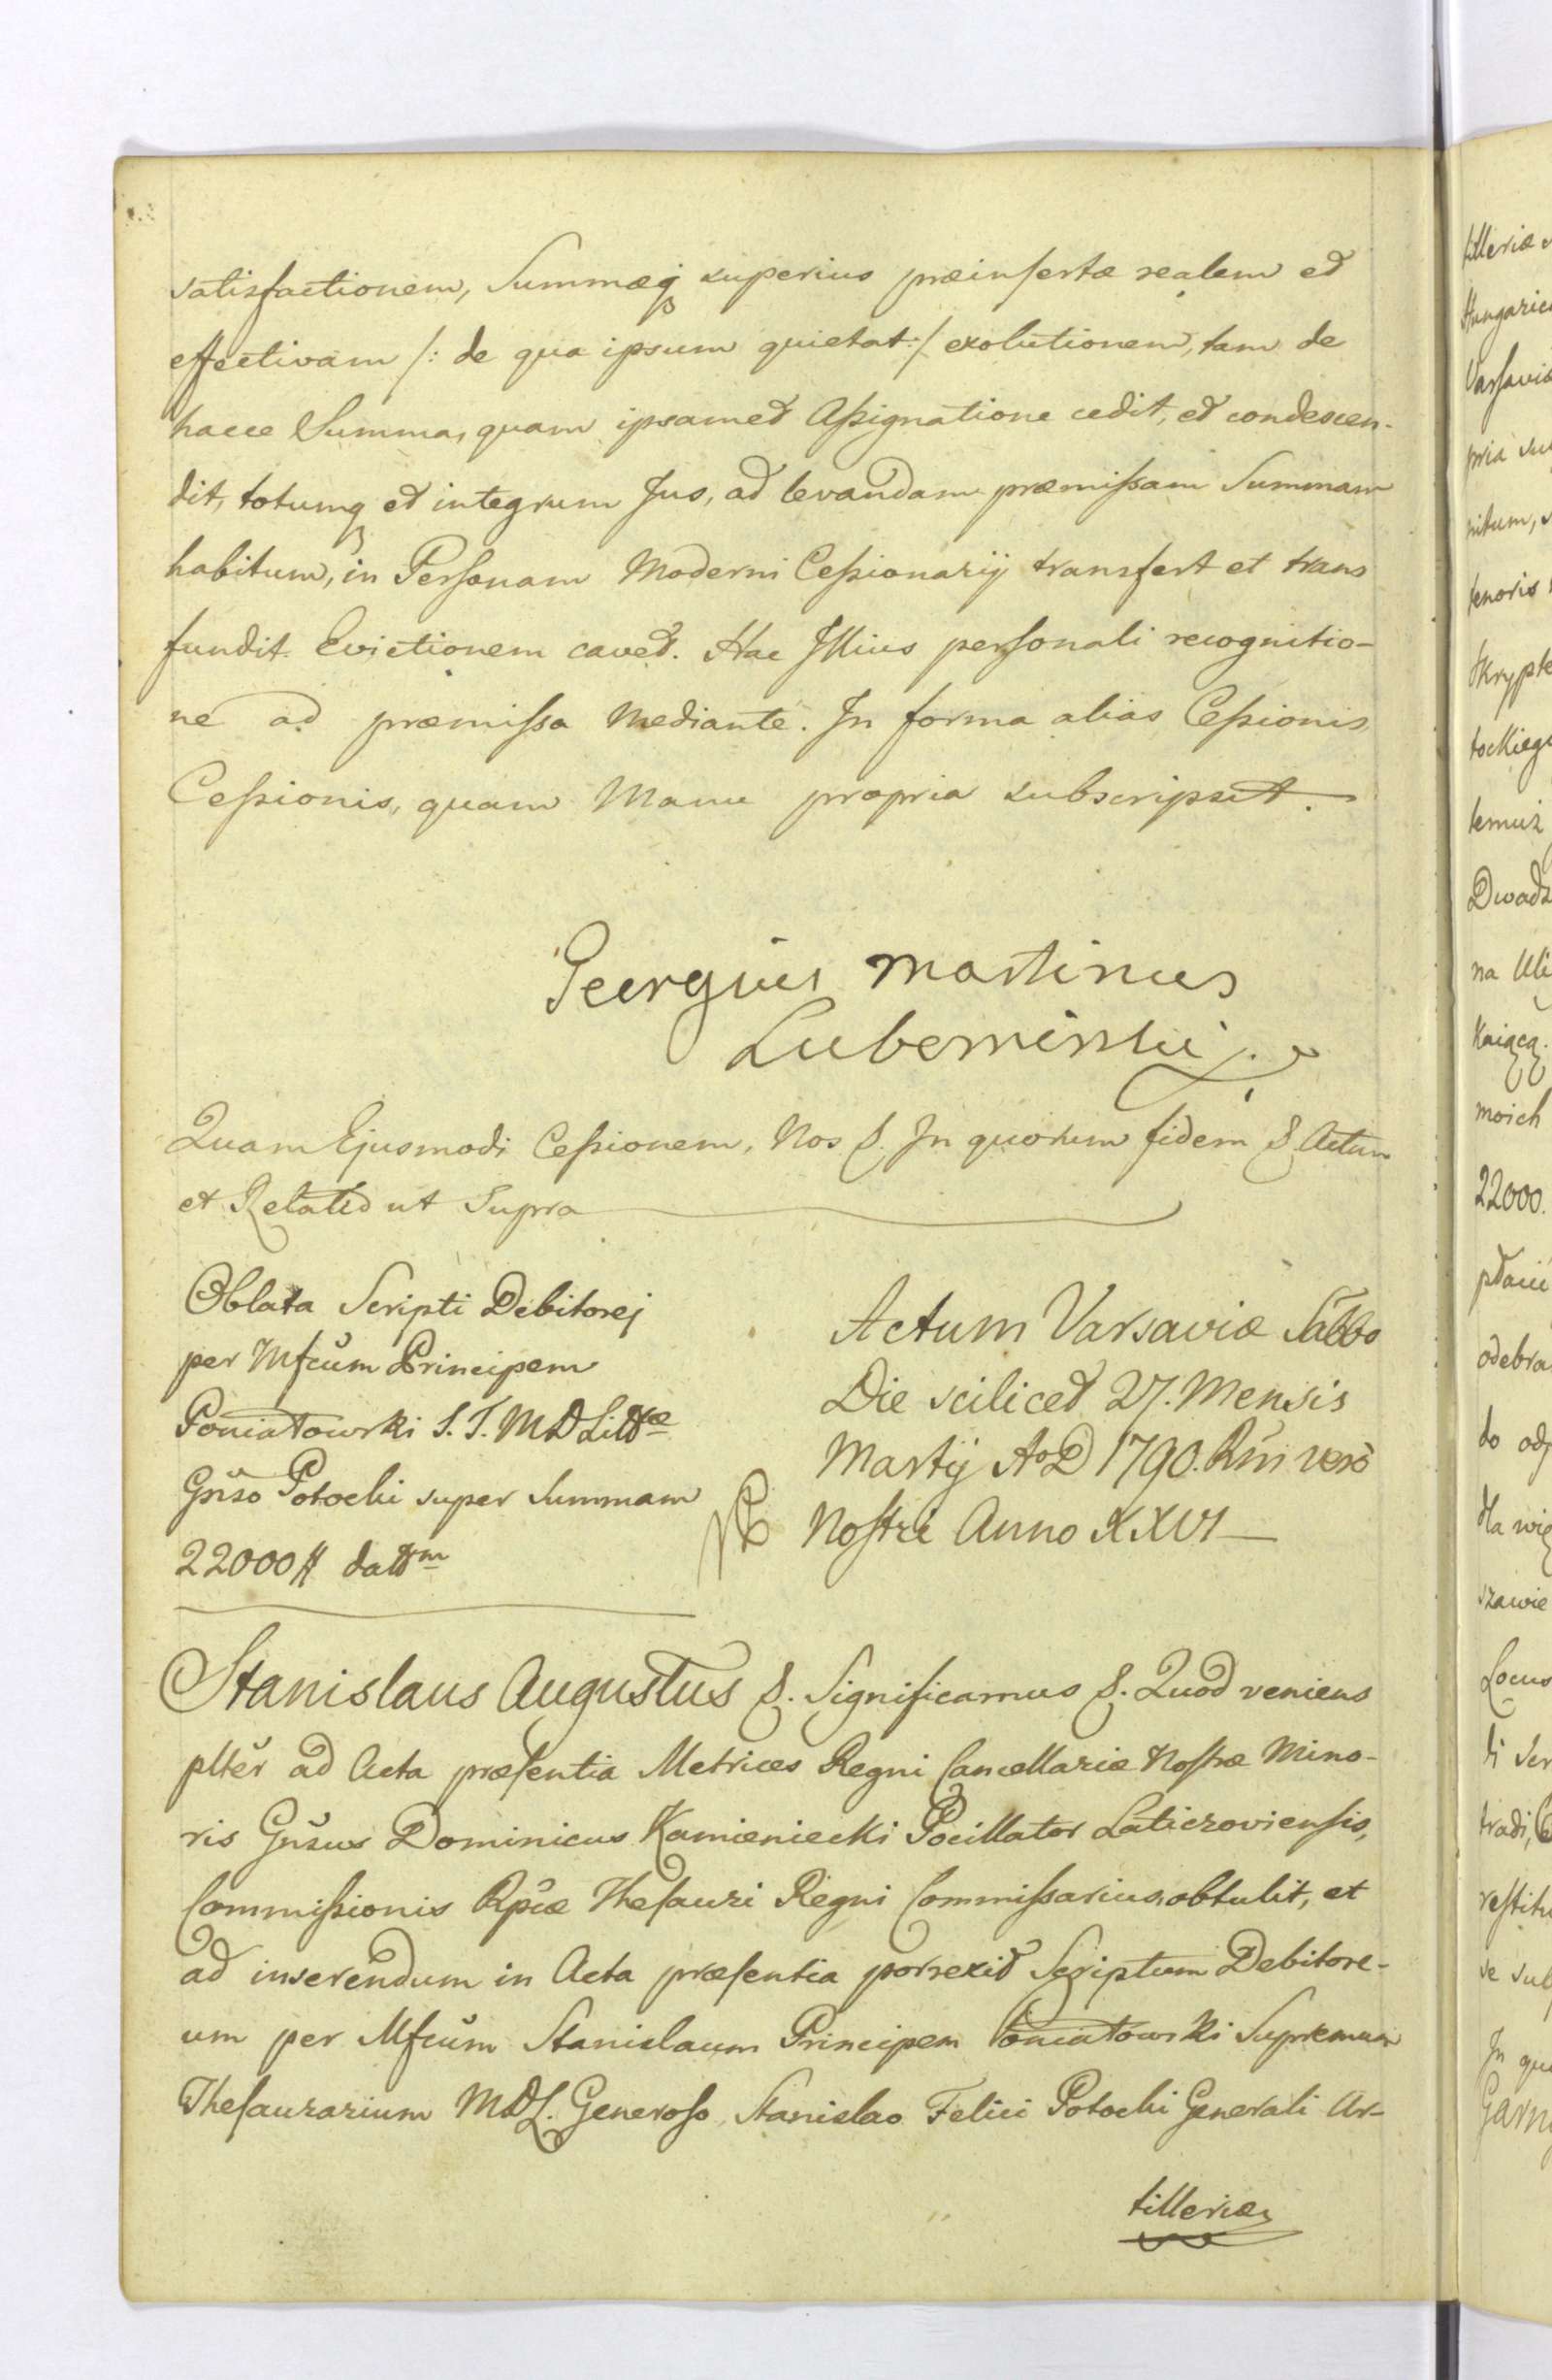 satisfactionem, Summæq superius præinsertæ realem et
effectivam /: de qua ipsum quietat :/ exolutionem, tam de
hacce Summa, quam ipsamet Assignatione cedit, et condescen-
dit, totumq et integrum Jus, ad levandam præmissam Summam
habitum, in Personam Moderni Cessionarij transfert et trans
fundit. Evictionem cavet. Hac Illius personali recognitio-
ne ad præmissa Mediante. In forma alias Cessionis
Cessionis, quam Manu propria subscripsit.
Georgius Martinus
Lubominski
Quam Ejusmodi Cessionem, Nos &. In quorum fidem &. Actum
et Relatio ut Supra
Oblata Scripti Debitorej
per Mfcum Principem
Poniatowski S. T. M D Littæ
Gnso Potocki super Summam
22000 # dattm
Actum Varsaviæ Sabbo
Die scilicet 27. Mensis
Martij Ao D 1790. Rni vero
Nostri Anno XXVI
Stanislaus Augustus &. Significamus &. Quod veniens
plter ad Acta præsentia Metrices Regni Cancellariæ Nostræ Mino-
ris Gnsus Dominicus Kamieniecki Pocillator Laticzoviensis,
Commissionis Rpcæ Thesauri Regni Commissarius, obtulit, et
ad inserendum in Acta præsentia porrexit Scriptum Debitore-
um per Mfcum Stanislaum Principem Poniatowski Supremum
Thesaurarium MDL. Generoso Stanislao Felici Potocki Generali Ar-
tilleriæ
tilleriæ
Hungaric
Varsaviæ
pria su
nitum,
tenoris
Skrypt
tockieg
temuż
Dwadz
na Uli
Kaiącą.
moich
22000.
odebra
do od
Na wię
szawie
Locus
ti Scr
tradi,
restitu
se sub
In qu